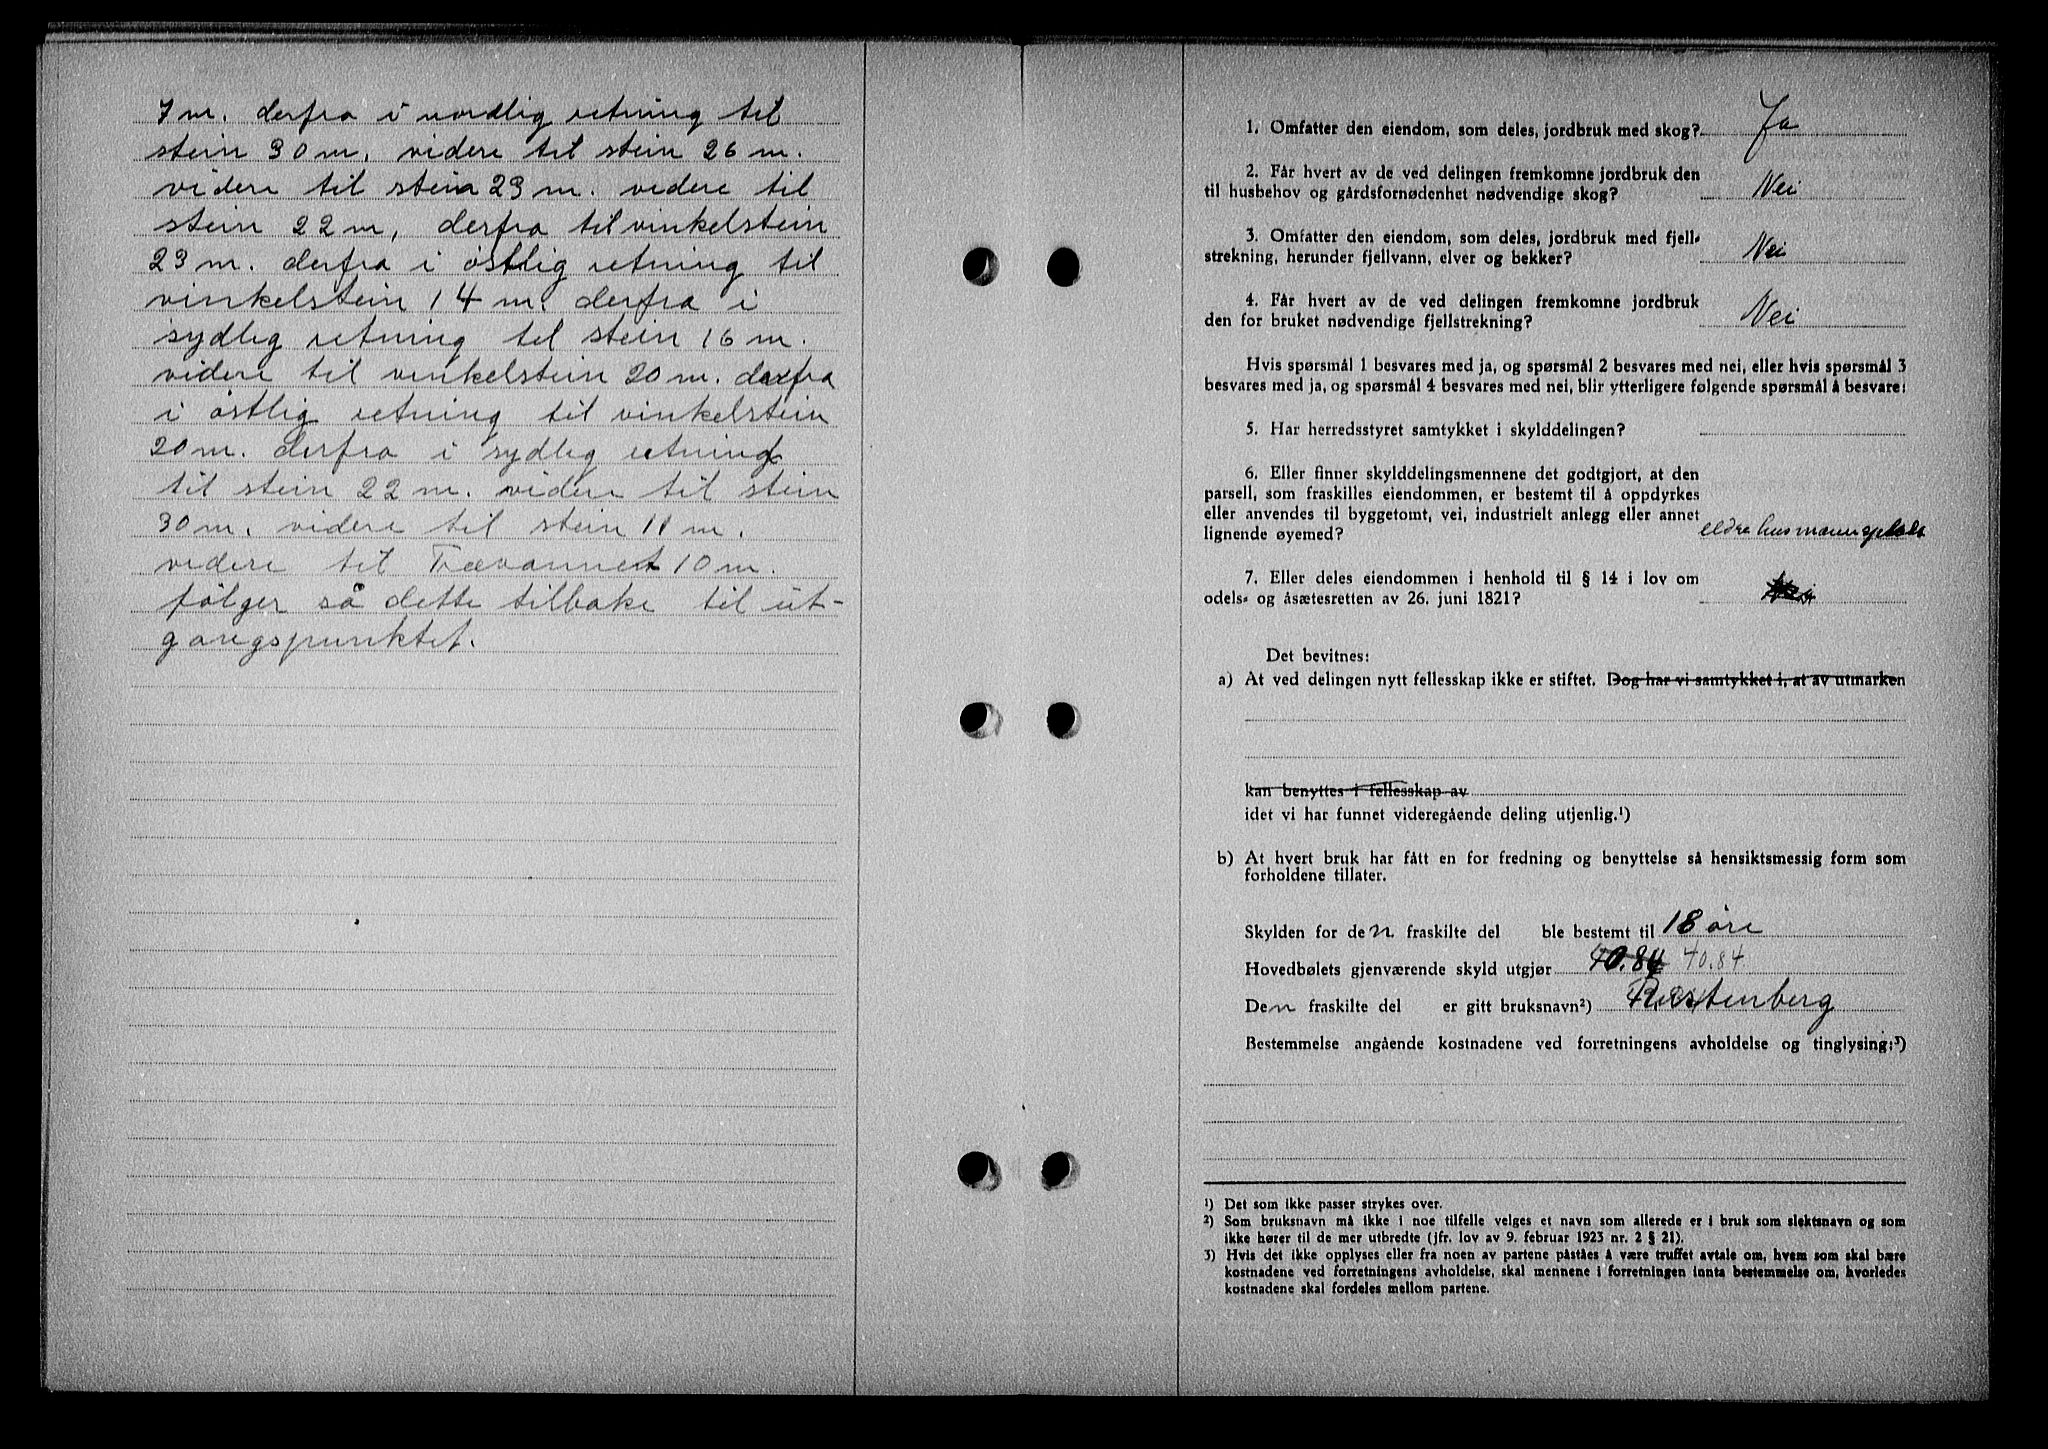 7 m. derfra i nordlig retning til
stein 30 m, videre til stein 26 m.
videre til stein 23 m. videre til
stein 22 m, derfra til vinkelstein
23 m. derfra i östlig retning til
vinkelstein 14 m. derfra i
sydlig retning til stein 16 m.
videre til vinkelstein 20 m. derfra
i östlig retning til vinkelstein
20 m. derfra i sydlig retning
til stein 22 m. videre til stein
30 m. videre til stein 11 m.
videre til Trævannet 10 m.
følger så dette tilbake til ut-
gangspunktet.
1. Omfatter den eiendom, som deles, jordbruk med skog? Ja
2. Får hvert av de ved delingen fremkomne jordbruk den
til husbehov og gårdsfornødenhet nødvendige skog? Nei
3. Omfatter den eiendom, som deles, jordbruk med fjell-
strekning, herunder fjellvann, elver og bekker? Nei
4. Får hvert av de ved delingen fremkomne jordbruk
den for bruket nødvendige fjellstrekning? Nei
Hvis spørsmål 1 besvares med ja, og spørsmål 2 besvares med nei, eller hvis spørsmål 3
besvares med ja, og spørsmål 4 besvares med nei, blir ytterligere følgende spørsmål å besvare:
5. Har herredsstyret samtykket i skylddelingen?
6. Eller finner skylddelingsmennene det godtgjort, at den
parsell, som fraskilles eiendommen, er bestemt til å oppdyrkes
eller anvendes til byggetomt, vei, industrielt anlegg eller annet
lignende øyemed? eldre husmannsplass
7. Eller deles eiendommen i henhold til § 14 i lov om
odels- og åsætesretten av 26. juni 1821?
Det bevitnes:
a) At ved delingen nytt fellesskap ikke er stiftet. Dog har vi samtykket i, at av utmarken
kan benyttes i fellesskap av
idet vi har funnet videregående deling utjenlig.¹)
b) At hvert bruk har fått en for fredning og benyttelse så hensiktsmessig form som
forholdene tillater.
Skylden for den fraskilte del ble bestemt til 18 öre
Hovedbølets gjenværende skyld utgjør 40.84 40.84
Den fraskilte del er gitt bruksnavn²) Rustenberg
Bestemmelse angående kostnadene ved forretningens avholdelse og tinglysing:³)
¹) Det som ikke passer strykes over.
²) Som bruksnavn må ikke i noe tilfelle velges et navn som allerede er i bruk som slektsnavn og som
ikke hører til de mer utbredte (jfr. lov av 9. februar 1923 nr. 2 § 21).
3) Hvis det ikke opplyses eller fra noen av partene påståes å være truffet avtale om, hvem som skal bære
kostnadene ved forretningens avholdelse, skal mennene i forretningen innta bestemmelse om, hvorledes
kostnadene skal fordeles mellom partene.